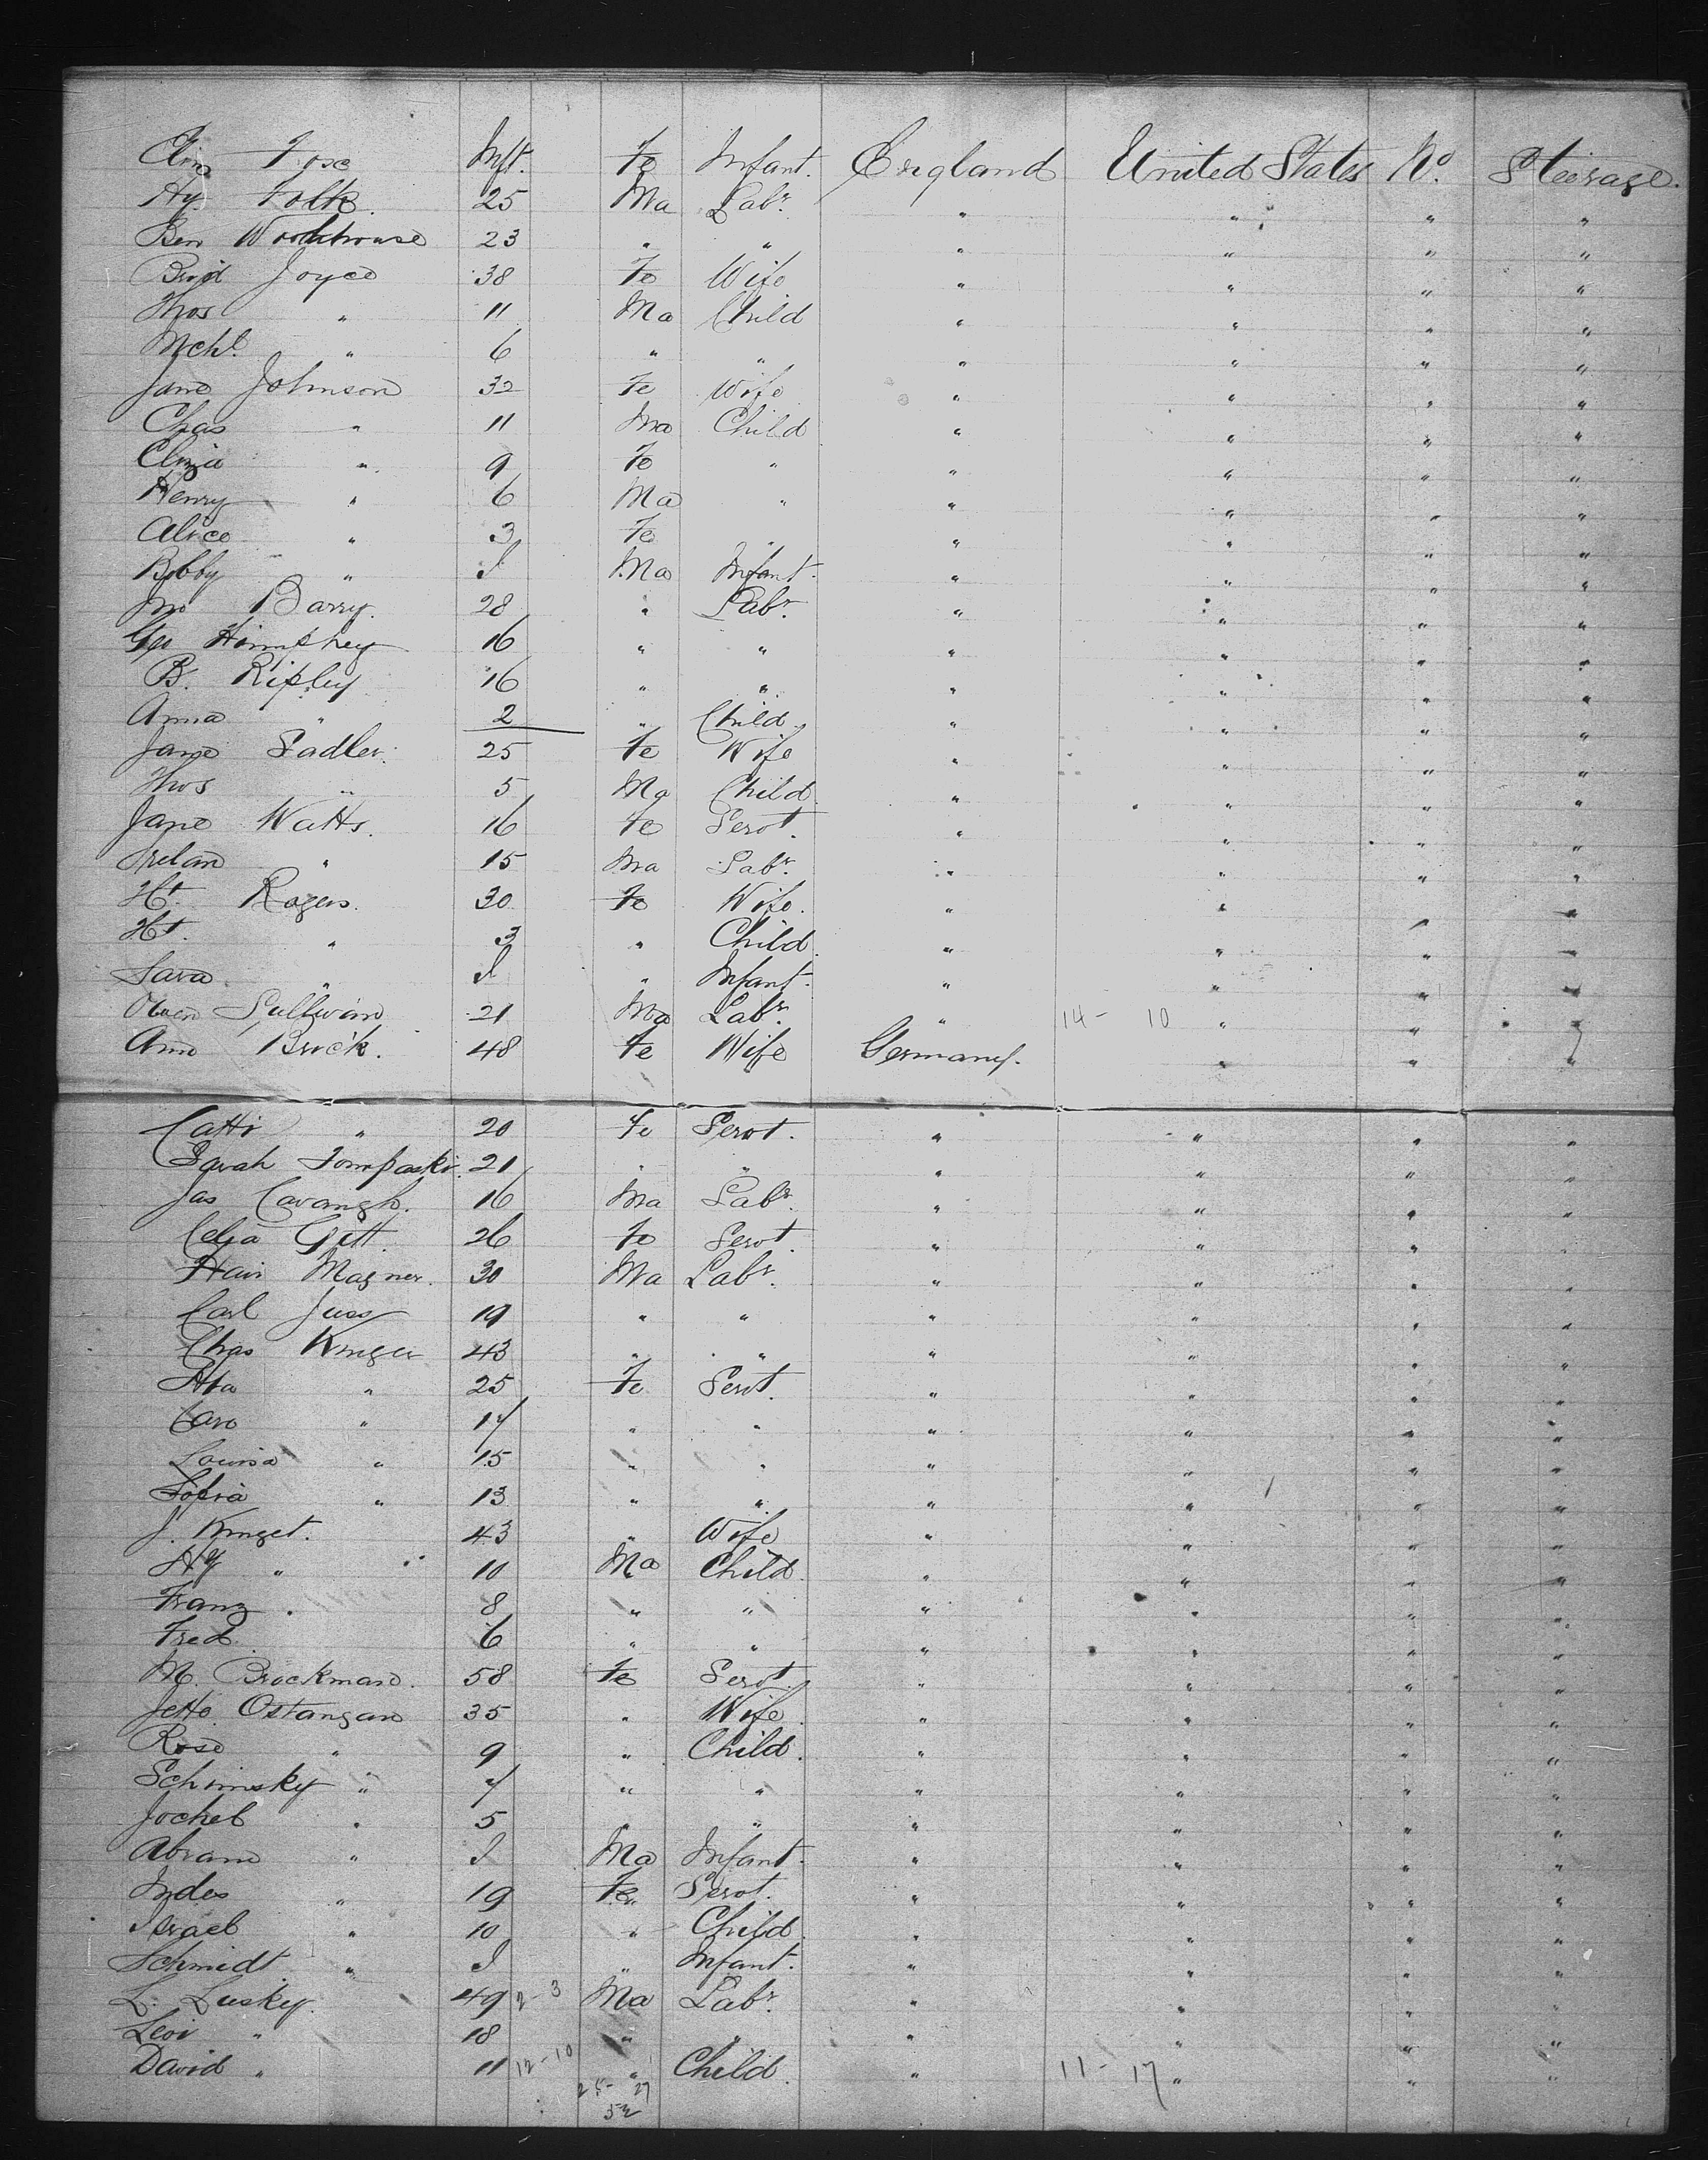 Eliz Fose Inft. Fe Infant. England United States No. Steerage.
Hy. Folk. 25 Ma Labr. " " " "
Ben Woodhouse 23 " " " " " "
Brid Joyce 38 Fe Wife " " " "
Thos " 11 Ma Child " " " "
Mchl. " 6 " " " " " "
Jane Johnson 32 Fe Wife " " " "
Chas " 11 Ma Child " " " "
Eliza " 9 Fe " " " " "
Henry " 6 Ma " " " " "
Alice " 3 Fe " " " " "
Bobby " I Ma Infant. " " " "
Jno Barry. 28 " Labr. " " " "
Geo Humphrey 16 " " " " " "
B. Ripley 16 " " " " " "
Anna " 2 " Child " " " "
Jane Sadler. 25 Fe Wife " " " "
Thos " 5 Ma Child. " " " "
Jane Watts. 16 Fe Servt. " " " "
" 15 Ma Labr. " " " "
Ht. Rogers. 30 Fe Wife. " " " "
Ht. " 3 " Child. " " " "
Sara " I " Infant. " " " "
Owen Sullivan 21 Ma Labr. " 14 - 10 " " "
Ann Brick. 48 Fe Wife Germany. " " "
Catti " 20 Fe Servt. " " " "
Sarah Tompaski. 21 " " " " " "
Jas Cavangh. 16 Ma Labr. " " " "
Celia Gitt. 26 Fe Servt. " " " "
Hair Magner. 30 Ma Labr. " " " "
Carl Juss 19 " " " " " "
Chas Kruger 43 " " " " " "
" 25 Fe Servt. " " " "
Caro " 17 " " " " " "
Louisa " 15 " " " " " "
Sofia " 13 " " " " " "
J. Kruget. 43 " Wife " " " "
Hy " 10 Ma Child. " " " "
Franz " 8 " " " " " "
Fred. 6 " " " " " "
M. Brockman. 58 Fe Servt. " " " "
Jette Ostangan 35 " Wife. " " " "
Rose " 9 " Child. " " " "
Schimsky " 7 " " " " " "
Jochel " 5 " " " " " "
Abram " I Ma Infant. " " " "
Indes " 19 Fe Servt. " " " "
Israel " 10 " Child. " " " "
Schmidt " I " Infant. " " " "
L. Lusky. 49 2-3 Ma Labr. " " " "
Levi " 18 " " " " " "
David " 11 12-10 " Child. " 11 - 17 " " "
25- 27
52